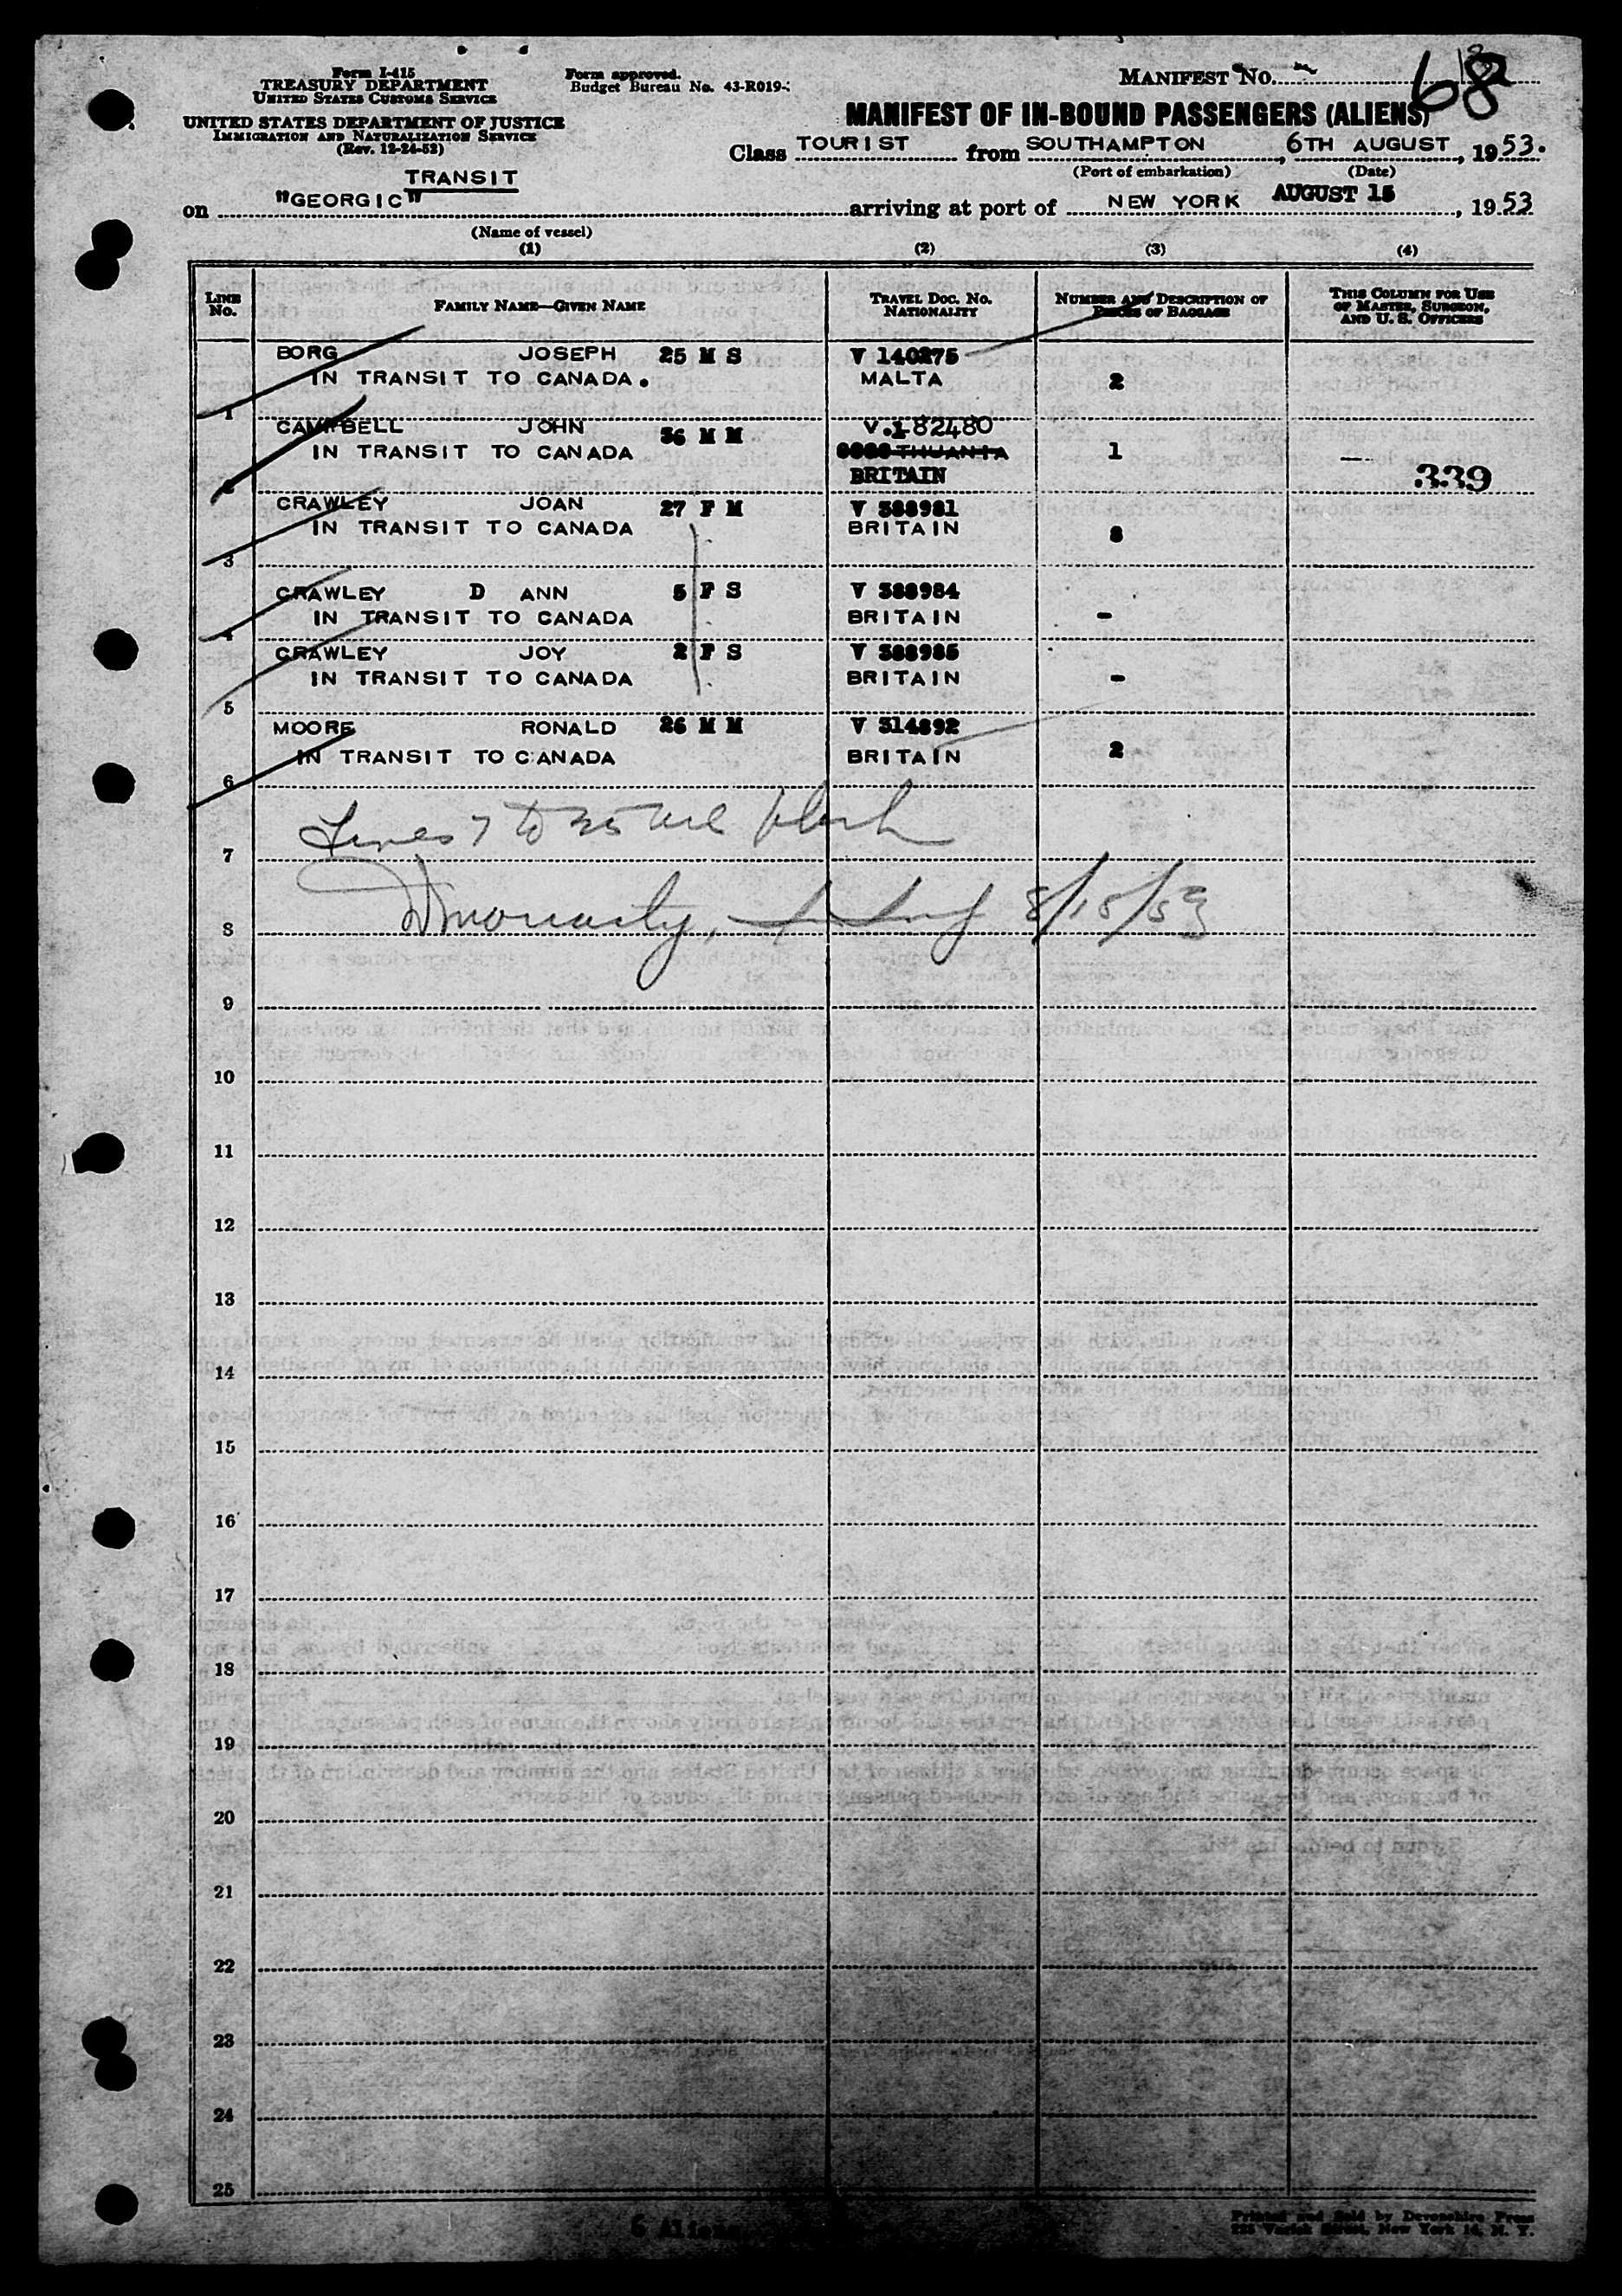 Form I-415
TREASURY DEPARTMENT
UNITED STATES CUSTOMS SERVICE
UNITED STATES DEPARTMENT OF JUSTICE
IMMIGRATION AND NATURALIZATION SERVICE
(Rev. 12-24-52)
Form approved.
Budget Bureau No. 43-R019-
MANIFEST No. 68
MANIFEST OF IN-BOUND PASSENGERS (ALIENS)
Class TOURIST from SOUTHAMPTON, 6TH AUGUST, 1953.
(Port of embarkation) (Date)
TRANSIT
on "GEORGIC" arriving at port of NEW YORK AUGUST 15, 1953
(Name of vessel)
(1) (2) (3) (4)
LINE No. FAMILY NAME—GIVEN NAME TRAVEL DOC. No. NATIONALITY NUMBER AND DESCRIPTION OF PIECES OF BAGGAGE THIS COLUMN FOR USE OF MASTER, SURGEON, AND U. S. OFFICERS
BORG JOSEPH 25 M S V 140275
IN TRANSIT TO CANADA. MALTA 2
1
CAMPBELL JOHN 36 M M V.182480
IN TRANSIT TO CANADA 1
2 BRITAIN 339
CRAWLEY JOAN 27 F M V 388981
IN TRANSIT TO CANADA BRITAIN 8
3
CRAWLEY D ANN 5 F S V 388984
4 IN TRANSIT TO CANADA BRITAIN -
CRAWLEY JOY 2 F S V 388985
IN TRANSIT TO CANADA BRITAIN -
5
MOORE RONALD 26 M M V 314892
IN TRANSIT TO CANADA BRITAIN 2
6
Lines 7 to 25 are blank
7
8/15/53
8
9
10
11
12
13
14
15
16
17
18
19
20
21
22
23
24
25
6 Aliens
Printed and Sold by Devonshire Press
225 Varick Street, New York 14, N. Y.